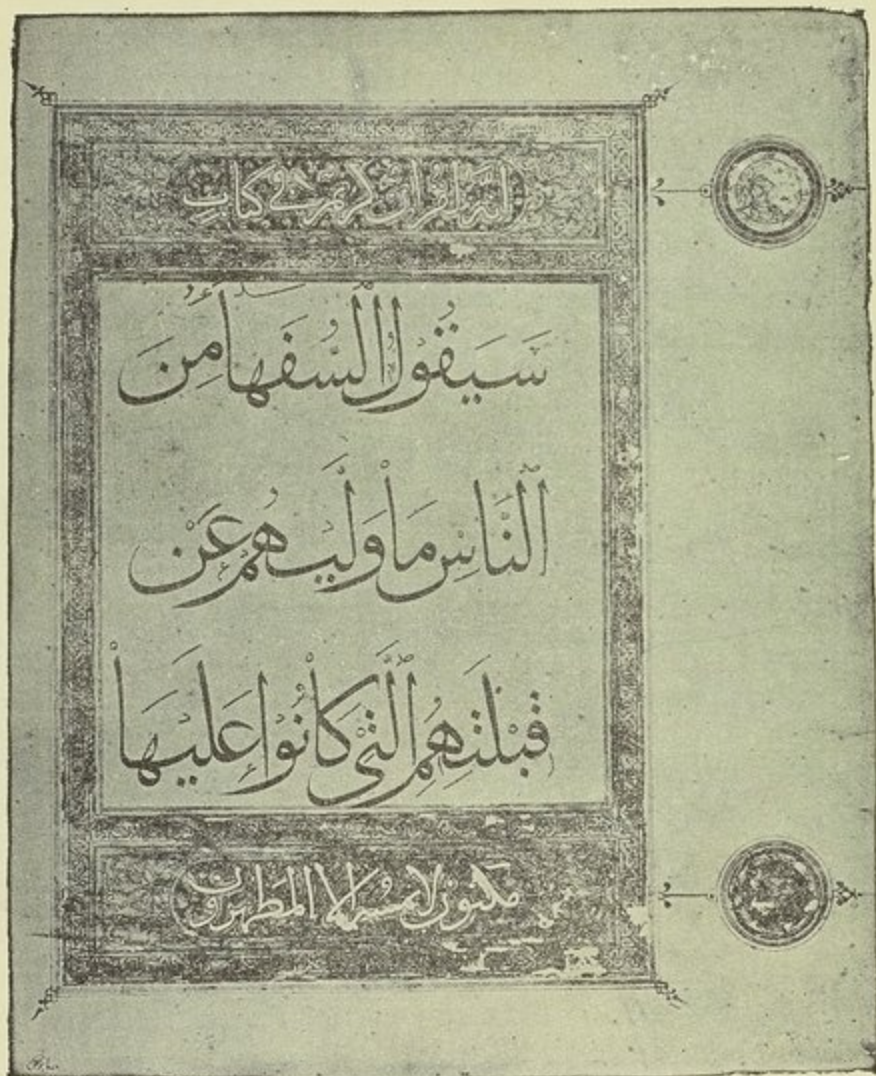 إنه لقرآن كريم في كتاب
سَيَقُولُ ٱلسُّفَهَآءُ مِنَ
ٱلنَّاسِ مَا وَلَّيٰهُمْ عَنْ
قِبْلَتِهِمُ ٱلَّتِي كَانُوا عَلَيْهَا
مكنون لا يمسه إلا المطهرون